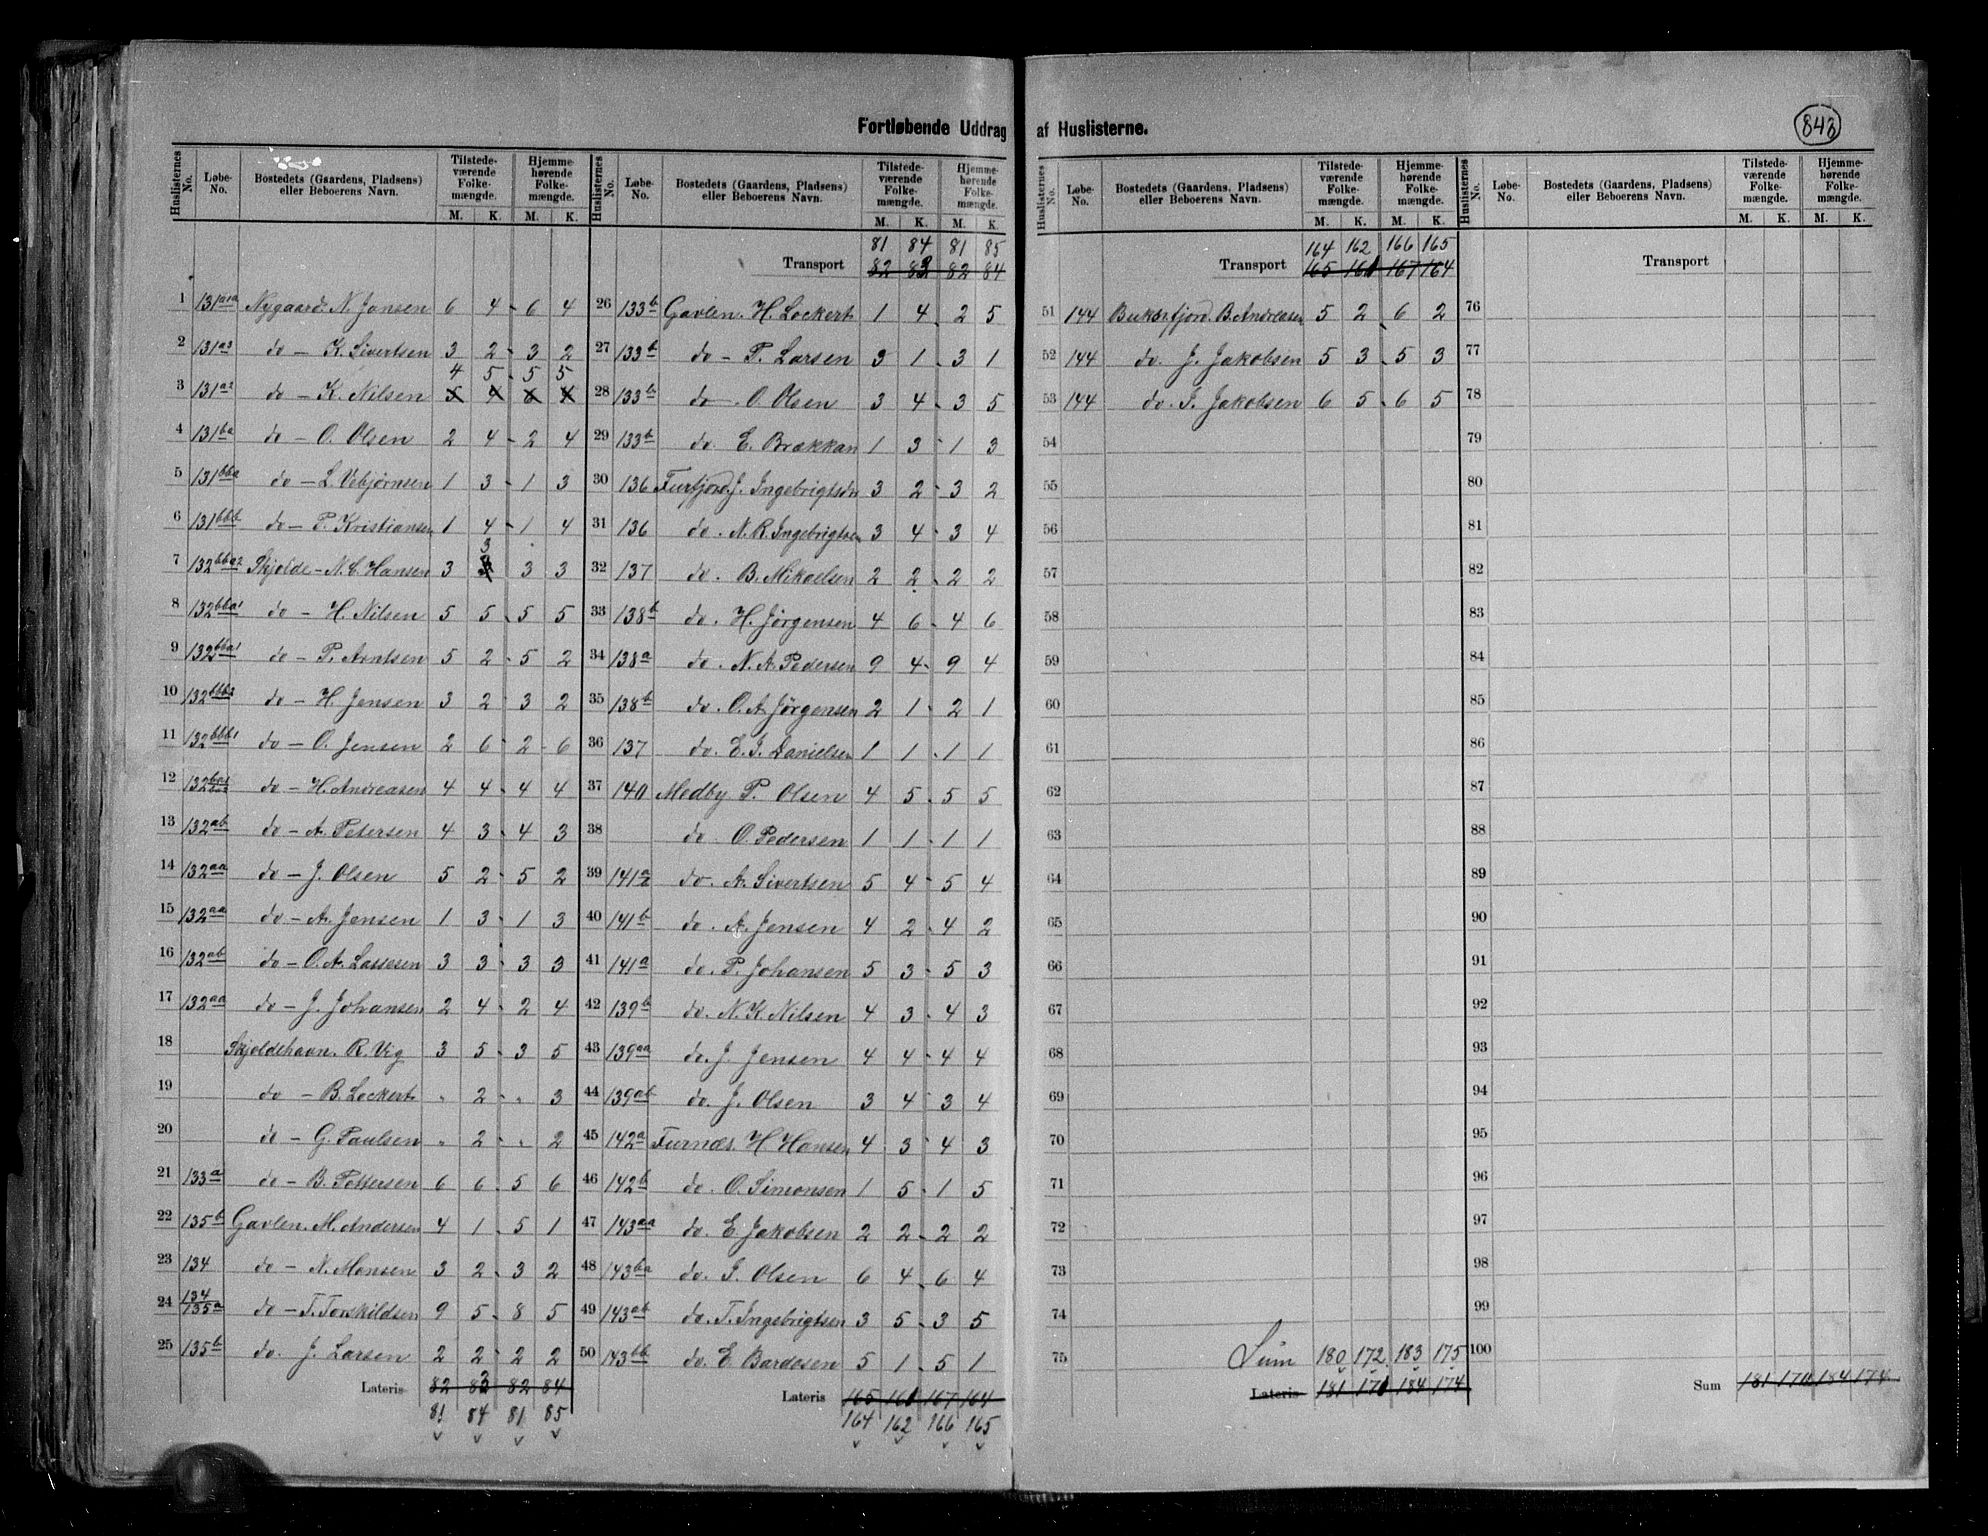 Fortløbende Uddrag af Huslisterne.
843
Huslisternes No. Løbe-No. Bostedets (Gaardens, Pladsens) eller Beboerens Navn. Tilstedeværende Folkemængde. M. K. Hjemmehørende Folkemængde. M. K.
1 131 Nygaard N. Jensen 6 4 - 6 4
2 131a3 do - K. Sivertsen 3 2 - 3 2
4 5 - 5 5
3 131a2 do - K. Nilsen 5 4 6 4
4 131ba do - O. Olsen 2 4 - 2 4
5 131bba do - L. Vebjørnsen 1 3 - 1 3
6 131bbb do - P. Kristiansen 1 4 - 1 4
3
7 132bba2 Skjolde - N. C. Hansen 3 3 3
8 132bba1 do - H. Nilsen 5 5 - 5 5
9 132bba1 do - P. Arntsen 5 2 - 5 2
10 132bbb2 do - H. Jensen 3 2 - 3 2
11 132bbb1 do - O. Jensen 2 6 - 2 - 6
12 132 do - H. Andreasen 4 4 - 4 4
13 132ab do - A. Petersen 4 3 - 4 3
14 132aa do - J. Olsen 5 2 - 5 2
15 132aa do - A. Jensen 1 3 - 1 3
16 132ab do - O. A. Lassesen 3 3 - 3 3
17 132aa do - J. Johansen 2 4 - 2 4
18 Skjoldehavn. R. Vig 3 5 - 3 5
19 do - B. Lockert " 2 - " 3
20 do - G. Paulsen " 2 - " 2
21 133a do - B. Pettersen 6 6 - 5 6
22 135b Gavlen. M. Andersen 4 1 - 5 1
23 134 do - N. Monsen 3 2 - 3 2
24 134/135a do - T. Torskildsen 9 5 - 8 5
25 135b do. J. Larsen 2 2 - 2 2
Lateris 82 83 82 84
81 84 81 85
Huslisternes No. Løbe-No. Bostedets (Gaardens, Pladsens) eller Beboerens Navn. Tilstedeværende Folkemængde. M. K. Hjemmehørende Folkemængde. M. K.
81 84 81 85
Transport 82 83 82 84
26 133b Gavlen. H. Lockert 1 4 - 2 5
27 133b do - P. Larsen 3 1 - 3 1
28 133b do - O. Olsen 3 4 - 3 5
29 133b do. E. Brækkan 1 3 - 1 3
30 136 Furfjord J. Ingebrigtsen 3 2 - 3 2
31 136 do. N. R. Ingebrigtsen 3 4 - 3 4
32 137 do. B. Mikaelsen 2 2 - 2 2
33 138b do. H. Jørgensen 4 6 - 4 6
34 138a do. N. A. Pedersen 9 4 - 9 4
35 138b do. O. A. Jørgensen 2 1 - 2 1
36 137 do. E. J. Danielsen 1 1 - 1 1
37 140 Medby P. Olsen 4 5 - 5 5
38 do. O. Pedersen 1 1 - 1 1
39 141a do. A. Sivertsen 5 4 - 5 4
40 141b do. A. Jensen 4 2 - 4 2
41 141a do. P. Johansen 5 3 - 5 3
42 139b do. N. K. Nilsen 4 3 - 4 3
43 139aa do. J. Jensen 4 4 - 4 4
44 139ab do. J. Olsen 3 4 - 3 4
45 142a Furnæs. H. Hansen 4 3 - 4 3
46 142b do. O. Simonsen 1 5 - 1 5
47 143aa do. E. Jakobsen 2 2 - 2 2
48 143ba do. I. Olsen 6 4 - 6 4
49 143ab do. T. Ingebrigtsen 3 5 - 3 5
50 143bb do. E. Bardosen 5 1 - 5 1
Lateris 165 161 167 164
164 162 166 165
Huslisternes No. Løbe-No. Bostedets (Gaardens, Pladsens) eller Beboerens Navn. Tilstedeværende Folkemængde. M. K. Hjemmehørende Folkemængde. M. K.
164 162 166 165
Transport 165 161 167 164
51 144 Buksfjord. B. Andreasen 5 2 - 6 2
52 144 do. J. Jakobsen 5 3 - 5 3
53 144 do. I. Jakobsen 6 5 - 6 5
54
55
56
57
58
59
60
61
62
63
64
65
66
67
68
69
70
71
72
73
74
75 Sum 180 172 183 175
Lateris 181 171 184 174
Huslisternes No. Løbe-No. Bostedets (Gaardens, Pladsens) eller Beboerens Navn. Tilstedeværende Folkemængde. M. K. Hjemmehørende Folkemængde. M. K.
Transport
76
77
78
79
80
81
82
83
84
85
86
87
88
89
90
91
92
93
94
95
96
97
98
99
100
Sum 181 171 184 174